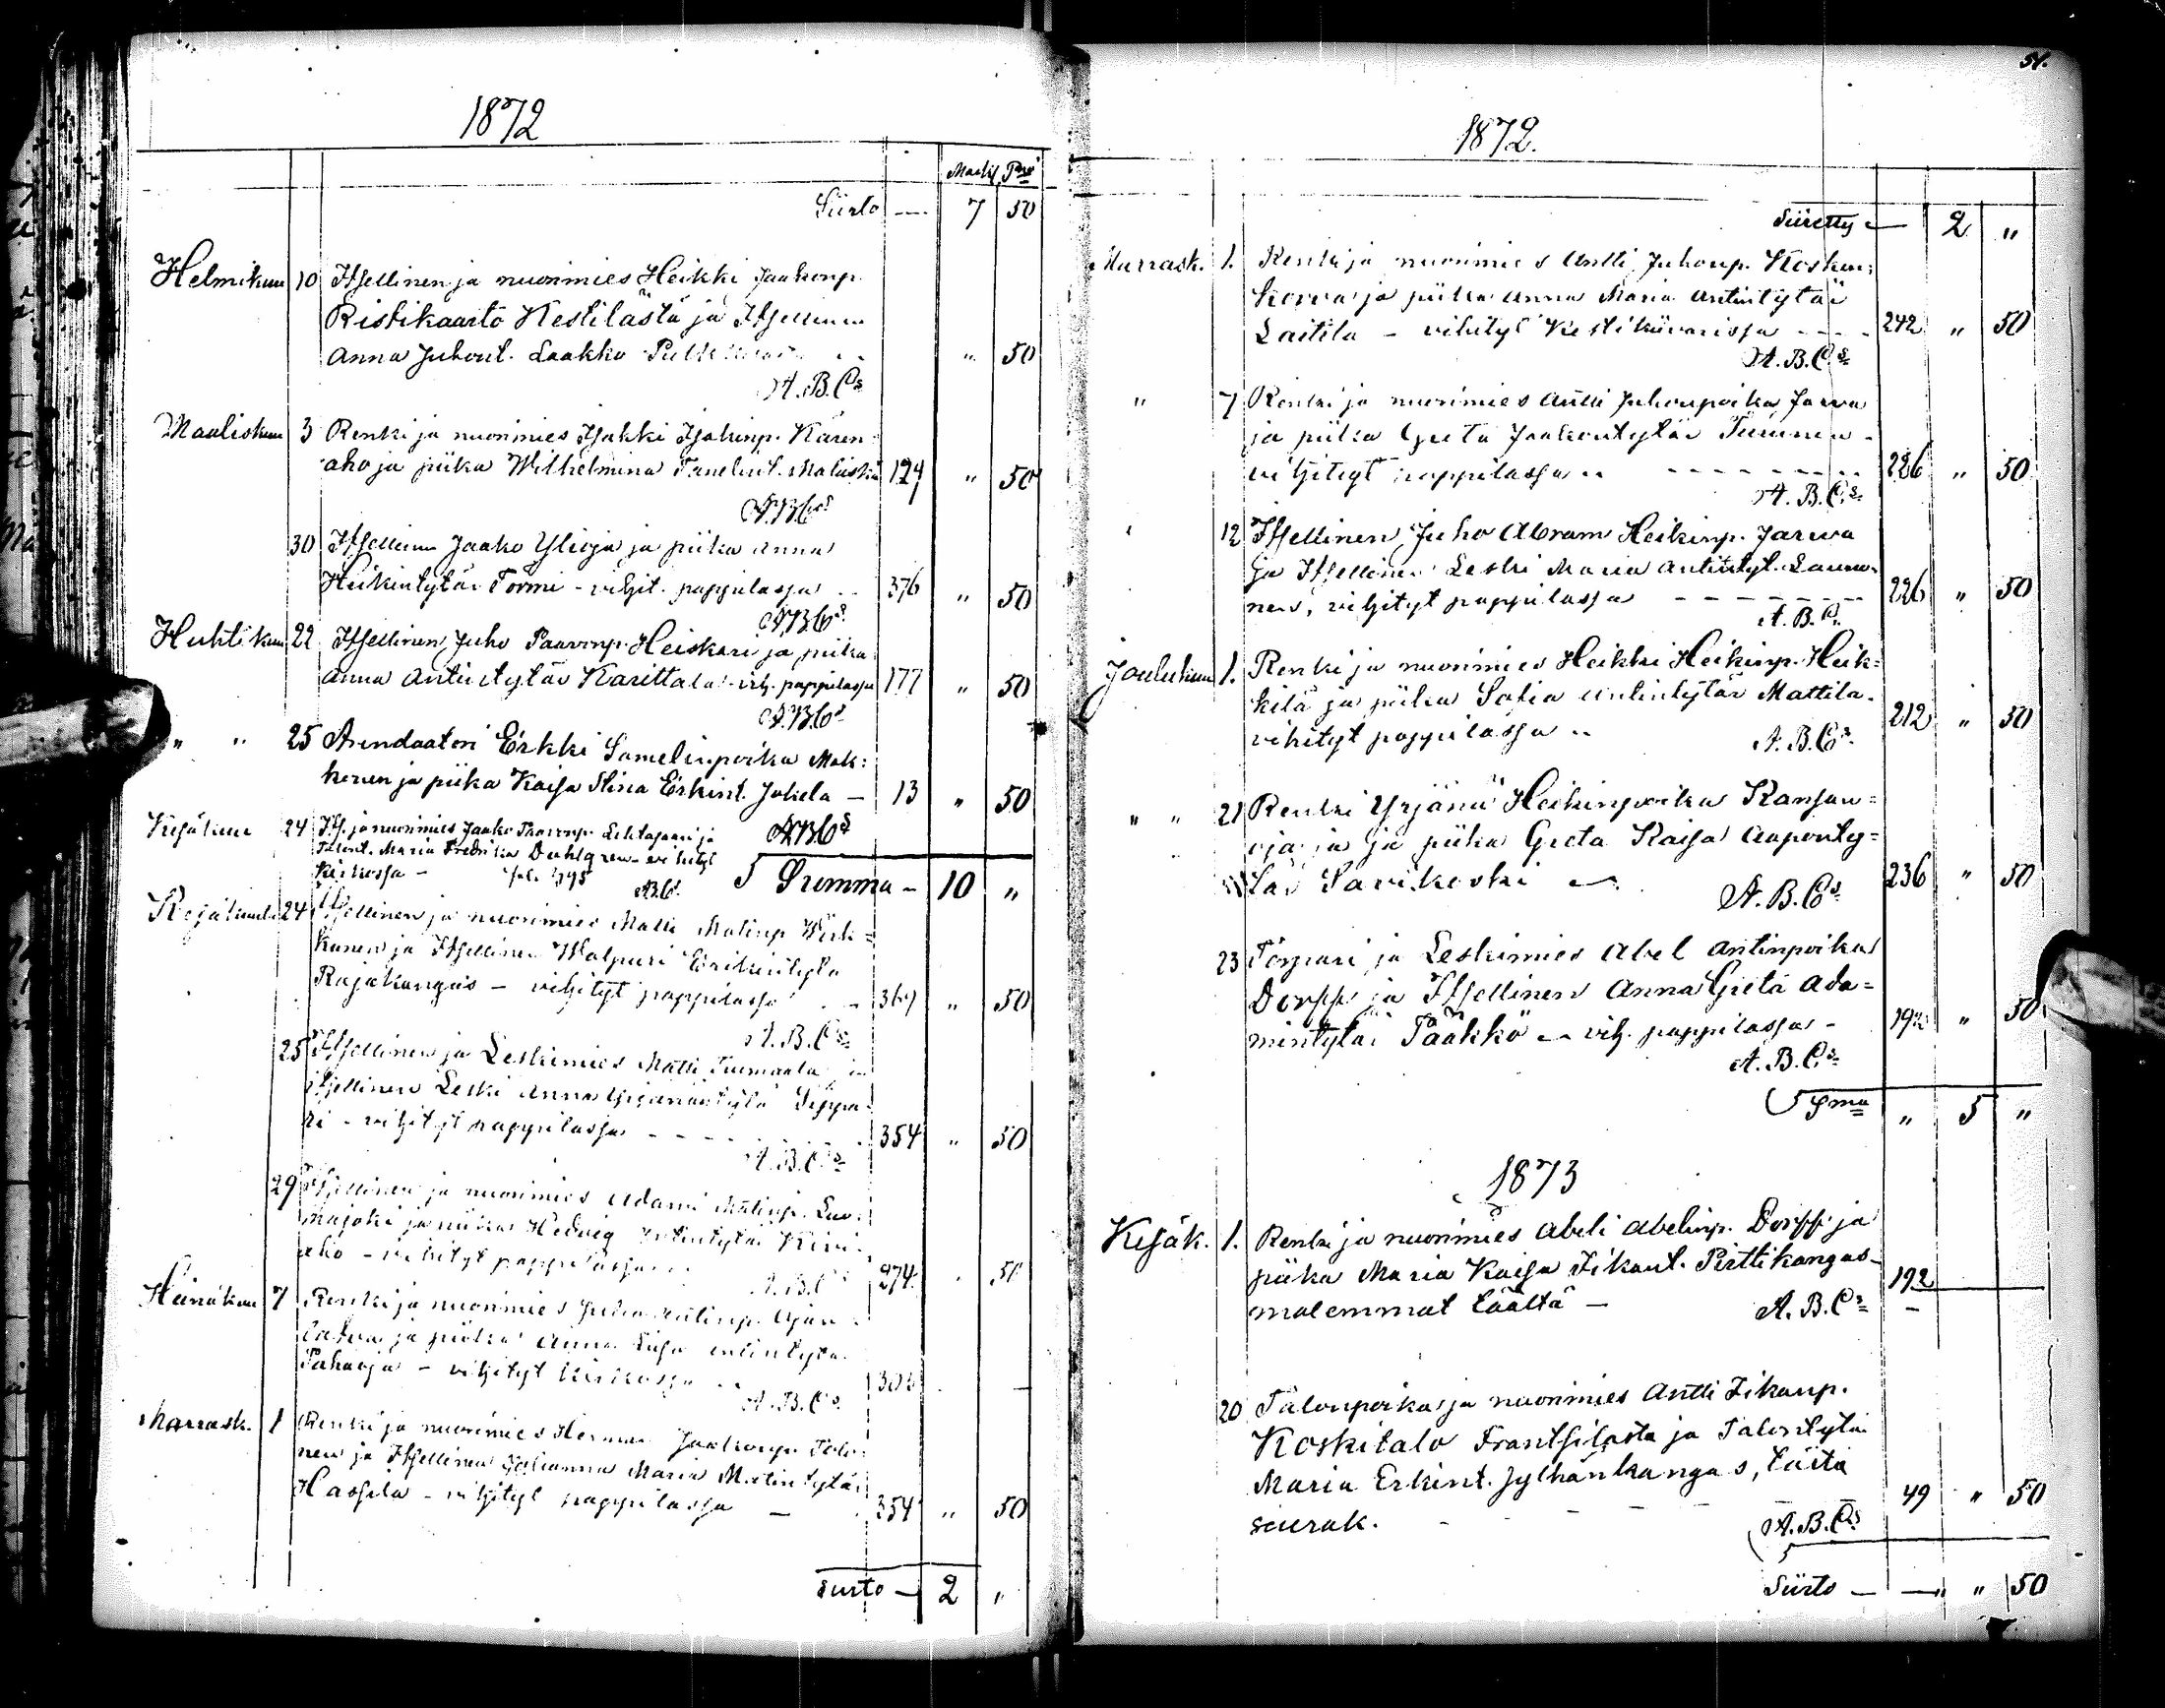 1872
Markk Pnä
Siirto — 7 50
Helmikuu 10 Itsellinen ja nuorimies Heikki Jaakonp.
Ristikaarto Kestilästä ja Itsellinen
Anna Juhont. Laakko " 50
A.B.Cs
Maaliskuu 3 Renki ja nuorimies Isakki Isakinp. Kären-
aho ja piika Wilhelmina Tanelint. 124 " 50
A.B.Cs
30 Itsellinen Jaako Ylioja ja piika Anna
Heikintytär Tormi - vihjit. pappilassa .. 376 " 50
A.B.Cs
Huhtikuu 22 Itsellinen Juho Paavonp. Heiskari ja piika
Anna Antintytär Karittala - vih. pappilassa 177 " 50
A.B.Cs
" " 25 Arendaatori Erkki Samelinpoika Mak:
honen ja piika Kaisa Stina Erkint. Jokela — 13 " 50
A.B.Cs
Kesäkuu 24 Its. ja nuorimies Jaako Paavonp. Lehtosaari ja
Talont. Maria Fredrika Dahlgren - vihityt
Kirkossa —
A.B.Cs
Summa — 10 "
Kesäkuu 24 Itsellinen ja nuorimies Matti Matinp.
kunen ja Itsellinen Walpuri
Rajakangas — vihityt pappilassa 369 " 50
A.B.Cs
25 Itsellinen ja Leskimies Matti Tiirmaala ja
itsellinen Leski Anna Yrjänäntytä Seppa-
ri - vihityt pappilassa - - - - 354 " 50
A.B.Cs
29 Itsellinen ja nuorimies Adami Matinp. Luo-
majoki ja piika Hedvig Antintytär Kivi-
aho - vihityt pappilassa 274 50
A.B.C
Heinäkuu 7 Renki ja nuorimies Juho Ajan
ja piika Anna Liisa
Pahaoja - vihityt kirkossa
A.B.Cs
Marrask. 1 Renki ja nuorimies Herman Jaakonp. Tolo-
nen ja Itsellinen Johanna Maria Matintytär
Hassila - vihityt pappilassa — 354 " 50
Siirto — 2 "
51.
1872.
Siiretty — 2 "
Marrask. 1. Renki ja nuorimies Antti Juhonp. Kosken:
korva ja piika Anna Maria Antintytär
Laitila - vihityt Kestikiivarissa - - - 242 " 50
A.B.Cs
" 7 Renki ja nuorimies Antti Juhonpoika Jarva
ja piika Greta Jaakontytär Tuminen -
vihjityt pappilassa .. - - - - - - 226 " 50
A.B.Cs
12 Itsellinen Juho Abram Heikinp. Jarwa
ja Itsellinen Leski Maria Antintyt. Launo-
nen, vihjityt pappilassa - - - - - - 226 " 50
A.B.C.
Joulukuu 1. Renki ja nuorimies Heikki Heikinp. Heik=
kilä ja piika Sofia Antintytär Mattila.
vihityt pappilassa .. 212 " 50
A.B.Cs
" " 21 Renki Yrjänä Heikinpoika Kansan=
oja ja piika Greta Kaisa Aaponty=
tär Savikoski — 236 " 50
A.B.Cs
23 Torpari ja Leskimies Abel Antinpoika
Dorff ja Itsellinen Anna Greta Ada=
mintytär Pääkkö — vih. pappilassa - 192 " 50
A.B.Cs
Sma " 5 "
1873
Kesäk. 1. Renki ja nuorimies Abeli Abelinp. Dorff ja
piika Maria Kaisa Iikant. Pirttikangas -
molemmat täältä — 192 —
A.B.Cs
20 Talonpoika ja nuorimies Antti Iikanp.
Koskitalo Frantsilasta ja Talontytär
Maria Erkint. Jylhänkangas, tästä
seurak. - - - - 49 " 50
A.B.Cs
Siirto — — " 50